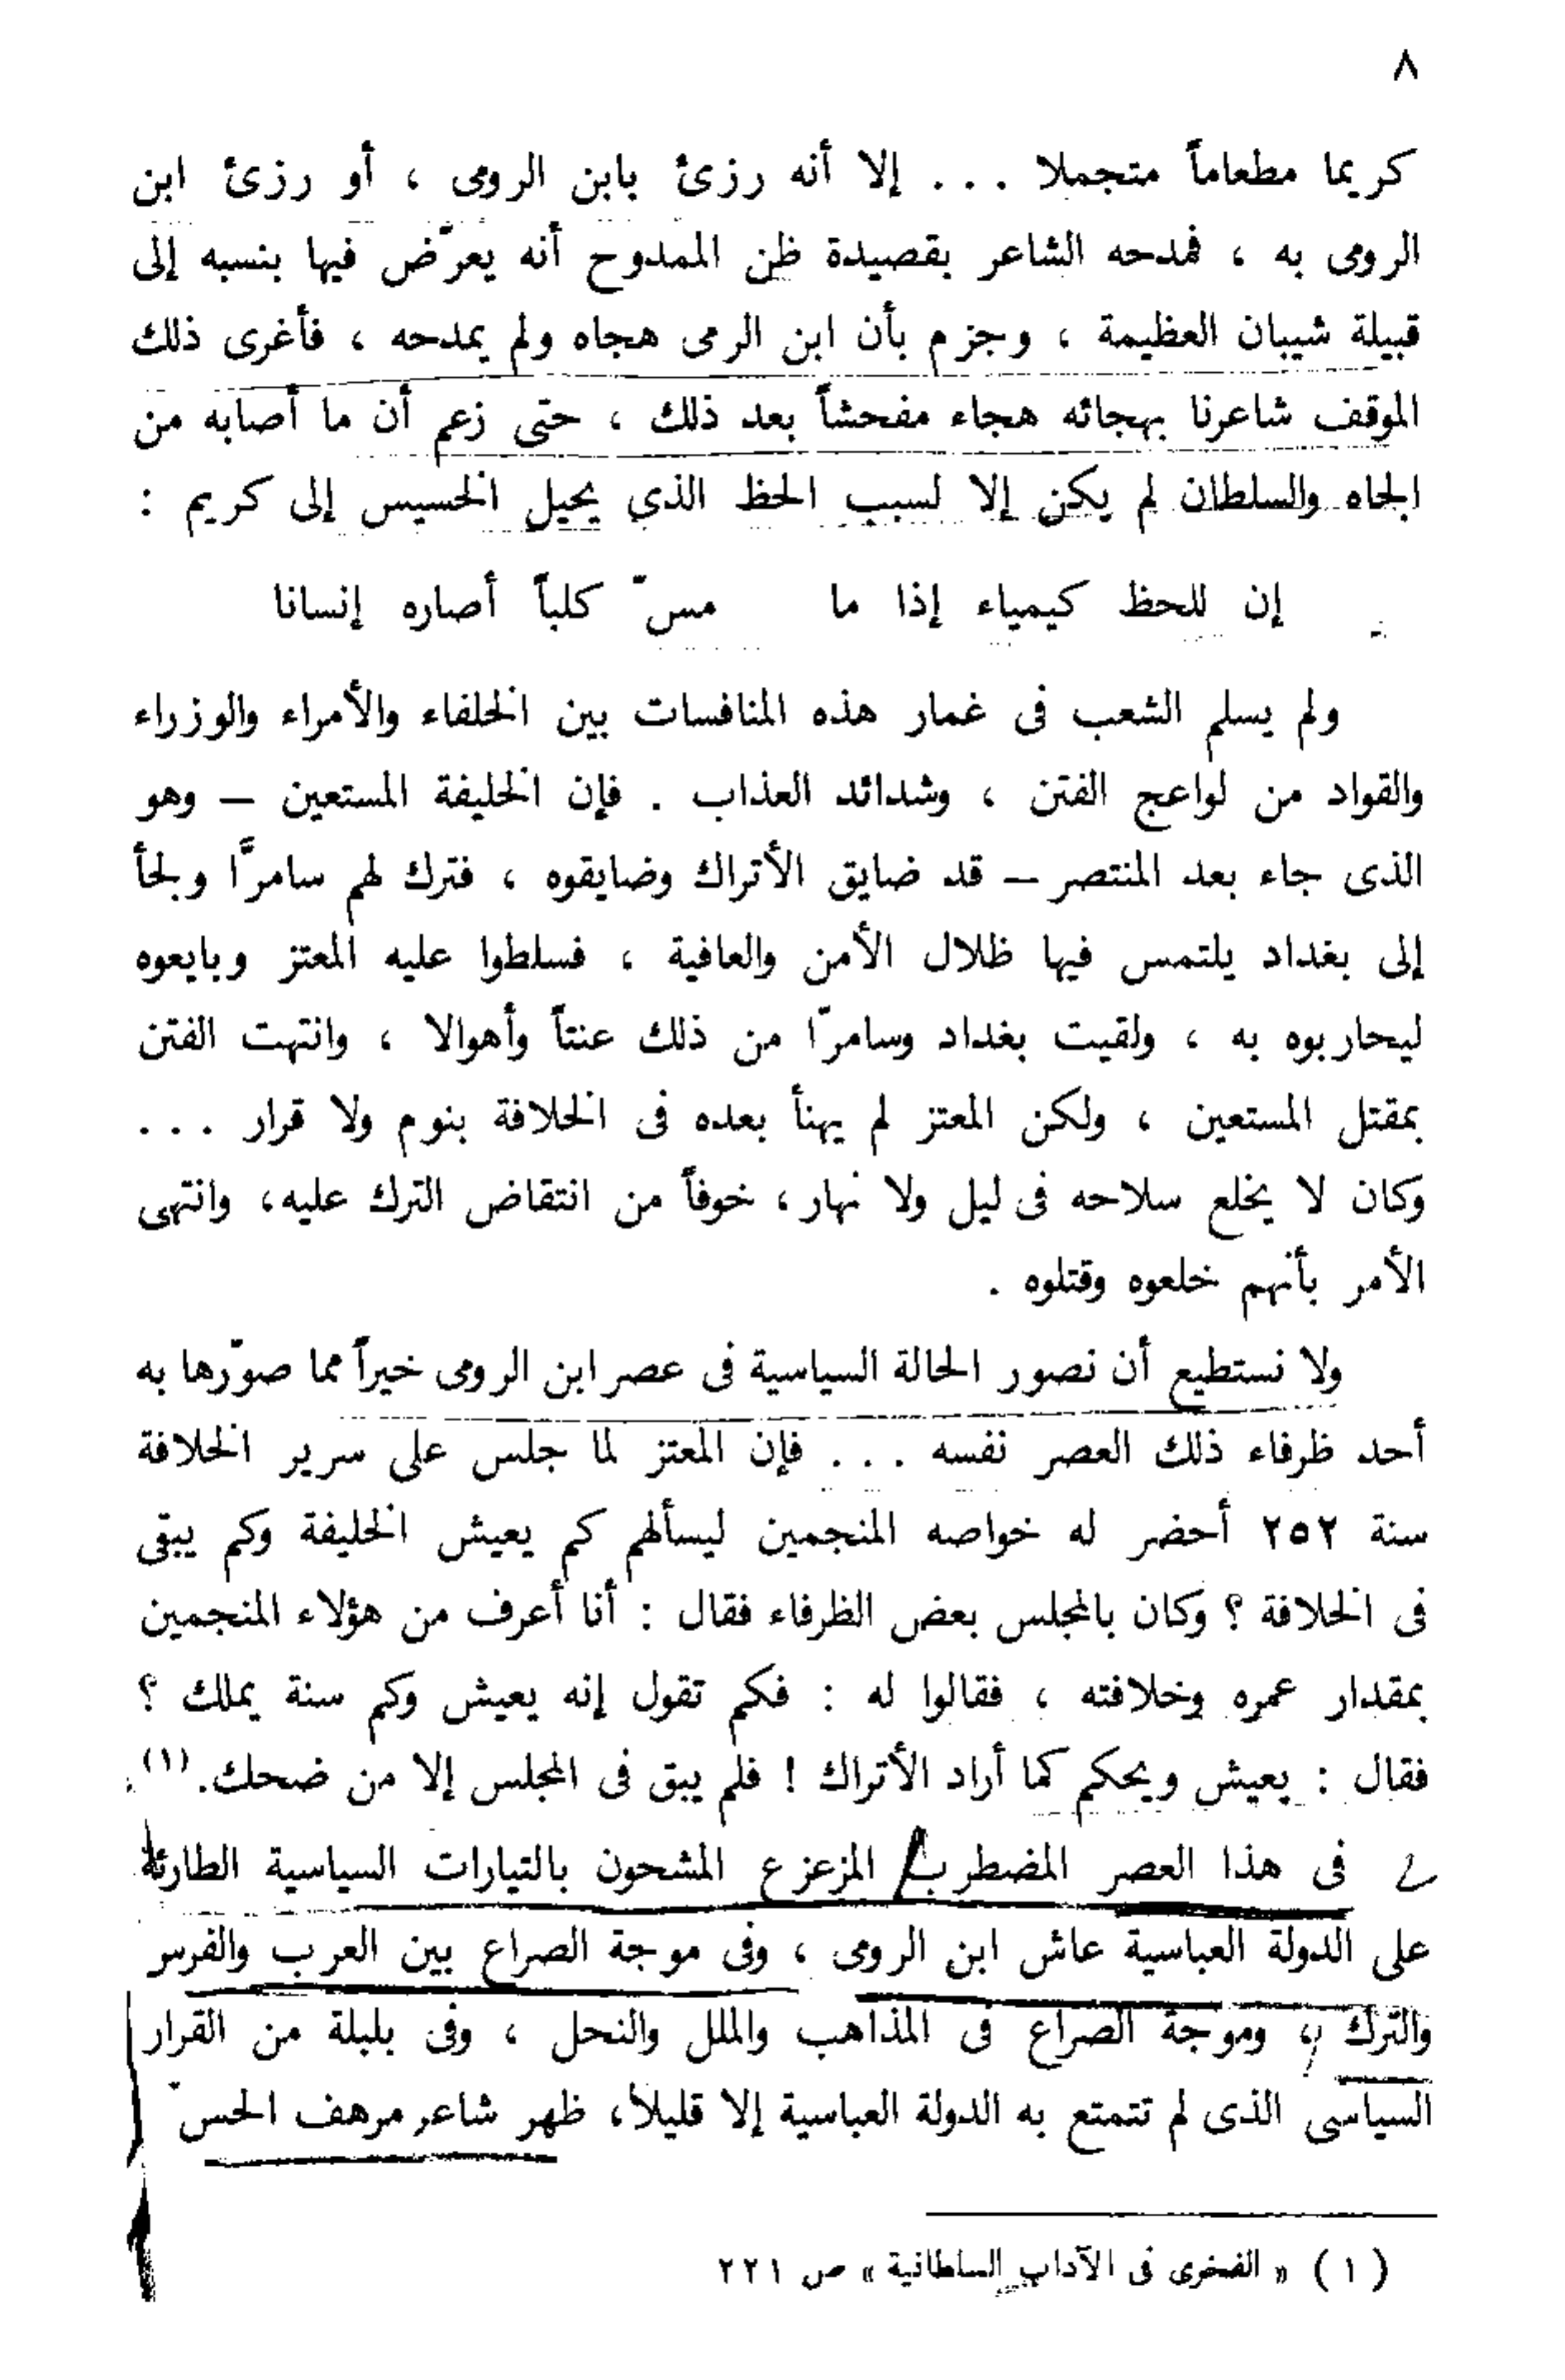 ٨
كريما مطعاماً متجملا ... إلا أنه رزئ بابن الرومى ، أو رزئ ابن
الرومى به ، فمدحه الشاعر بقصيدة ظن الممدوح أنه يعرّض فيها بنسبه إلى
قبيلة شيبان العظيمة ، وجزم بأن ابن الرمى هجاه ولم يمدحه ، فأغرى ذلك
الموقف شاعرنا بهجائه هجاء مفحشاً بعد ذلك ، حتى زعم أن ما أصابه من
الجاه والسلطان لم يكن إلا لسبب الحظ الذي يحيل الخسيس إلى كريم :
إن للحظ كيمياء إذا ما مسّ كلباً أصاره إنسانا
ولم يسلم الشعب فى غمار هذه المنافسات بين الخلفاء والأمراء والوزراء
والقواد من لواعج الفتن ، وشدائد العذاب . فإن الخليفة المستعين – وهو
الذى جاء بعد المنتصر – قد ضايق الأتراك وضايقوه ، فترك لهم سامرّا ولجأ
إلى بغداد يلتمس فيها ظلال الأمن والعافية ، فسلطوا عليه المعتز وبايعوه
ليحاربوه به ، ولقيت بغداد وسامرّا من ذلك عنتاً وأهوالا ، وانتهت الفتن
بمقتل المستعين ، ولكن المعتز لم يهنأ بعده فى الخلافة بنوم ولا قرار ...
وكان لا يخلع سلاحه فى ليل ولا نهار ، خوفاً من انتقاض الترك عليه، وانتهى
الأمر بأنهم خلعوه وقتلوه .
ولا نستطيع أن نصور الحالة السياسية فى عصر ابن الرومى خيراً مما صوّرها به
أحد ظرفاء ذلك العصر نفسه ... فإن المعتز لما جلس على سرير الخلافة
سنة ٢٥٢ أحضر له خواصه المنجمين ليسألهم كم يعيش الخليفة وكم يبقى
فى الخلافة ؟ وكان بالمجلس بعض الظرفاء فقال : أنا أعرف من هؤلاء المنجمين
بمقدار عمره وخلافته ، فقالوا له : فكم تقول إنه يعيش وكم سنة يملك ؟
فقال : يعيش ويحكم كما أراد الأتراك ! فلم يبق فى المجلس إلا من ضحك. (١)
فى هذا العصر المضطرب المزعزع المشحون بالتيارات السياسية الطارئة
على الدولة العباسية عاش ابن الرومى ، وفى موجة الصراع بين العرب والفرس
والترك ، وموجة الصراع فى المذاهب والملل والنحل ، وفى بلبلة من القرار
السياسى الذى لم تتمتع به الدولة العباسية إلا قليلا، ظهر شاعر مرهف الحسّ
( ١ ) « الفخرى فى الآداب السلطانية » ص ٢٢١